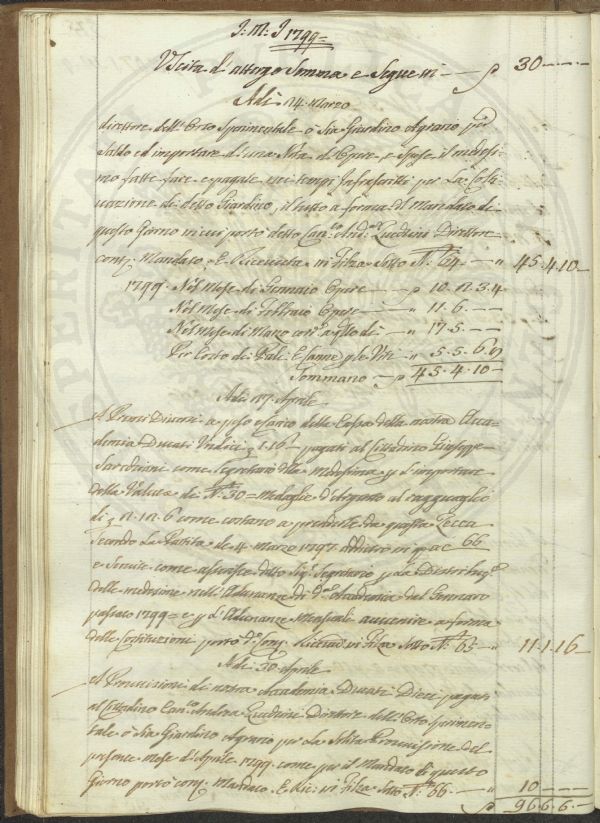 J: M: J 1799=
Uscita d'attergo Somma e Segue ₽ 30 — —
Adì 24. Marzo
direttore dell'Orto Sperimentale ò sia Giardino Agrario per
Saldo ed importare d'una Nota di Opere, e Spese il medesi-
mo fatte fare e pagate nei tempi Infrascritti per La Colti-
vazione di detto Giardino, il tutto a forma del Mandato di
questo Giorno in cui portò detto Can.co And.a Zucchini Direttore
cons. Mandato E Ricevuta in Filza Sotto N.° 64 — " 45.4.10 —
1799. Nel Mese di Gennaio Opere — ₽ 10.12.3.4
Nel Mese di Febbraio Opere — " 11.6. — —
Nel Mese di Marzo a tt.o dì — " 17.5. — —
Per Costo di Pali e Canne p le Viti " 5.5.6
Sommano — ₽ 45.4.10 —
Adì 17. Aprile
A Premi Diversi a peso e carico della Cassa della nostra Acca-
demia Ducati Undici 1.16 pagati al Cittadino Giuseppe
Sarchiani come Segretario della Medesima p l'importare
della Valuta di N.° 30 = Medaglie d'Argento al ragguaglio
di 2.12.6 come costano a prenderle da questa Zecca
Secondo La Partita de 4 Marzo 1797 addietro in q.o a c 66
e Servite come asserisce detto Sig.r Segretario p La Distribuz.e
delle medesime nell'Adunanze di d.a Accademia del Gennaro
passato 1799 = e p l'Adunanze Mensuali avvenire a forma
delle Costituzioni portò d.o Cons. Ricevuta in Filza Sotto N.° 65 — " 11.1.16 —
Adì 30 Aprile
A Provvisioni di nostra Accademia Ducati Dieci pagati
al Cittadino Can.co Andrea Zucchini Direttore dell'Orto sperimen-
tale ò Sia Giardino Agrario per La Solita Provvisione del
presente Mese d'Aprile 1799. come per il Mandato di questo
Giorno portò cons. Mandato E Ric: in Filza Sotto N.° 66 — " 10 — — —
₽ 96.6.6 —